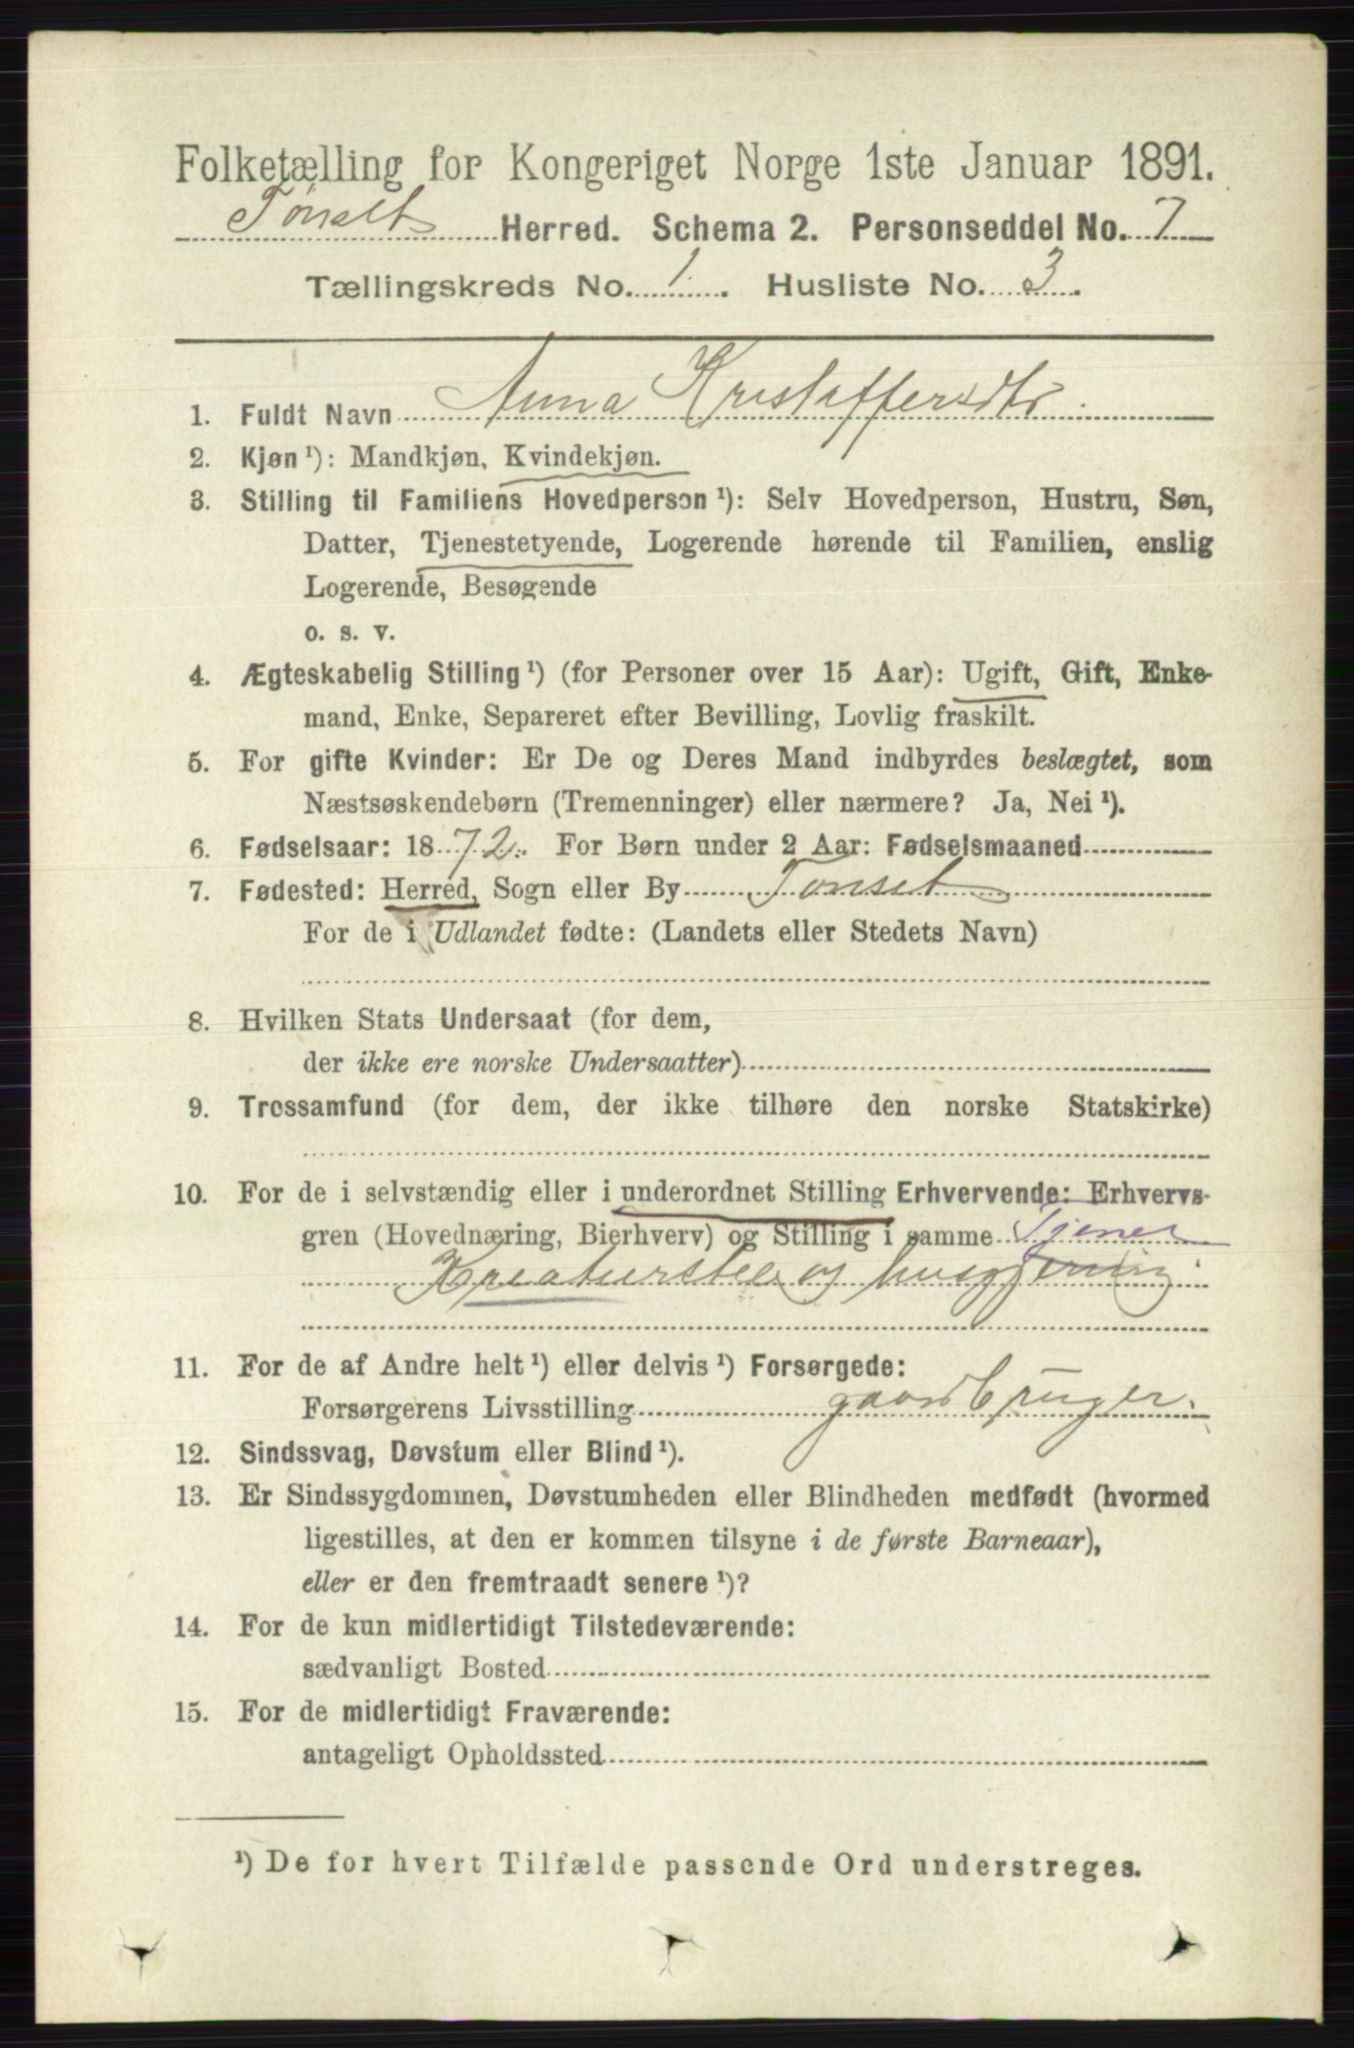 Folketælling for Kongeriget Norge 1ste Januar 1891.
Tønset Herred. Schema 2. Personseddel No. 7
Tællingskreds No. 1. Husliste No. 3.
1. Fuldt Navn Anna Kristoffersdtr
2. Kjøn ¹): Mandkjøn, Kvindekjøn.
3. Stilling til Familiens Hovedperson ¹): Selv Hovedperson, Hustru, Søn,
Datter, Tjenestetyende, Logerende hørende til Familien, enslig
Logerende, Besøgende
o. s. v.
4. Ægteskabelig Stilling ¹) (for Personer over 15 Aar): Ugift, Gift, Enke-
mand, Enke, Separeret efter Bevilling, Lovlig fraskilt.
5. For gifte Kvinder: Er De og Deres Mand indbyrdes beslægtet, som
Næstsøskendebørn (Tremenninger) eller nærmere? Ja, Nei ¹).
6. Fødselsaar: 1872. For Børn under 2 Aar: Fødselsmaaned
7. Fødested: Herred, Sogn eller By Tonset
For de i Udlandet fødte: (Landets eller Stedets Navn)
8. Hvilken Stats Undersaat (for dem,
der ikke ere norske Undersaatter)
9. Trossamfund (for dem, der ikke tilhøre den norske Statskirke)
10. For de i selvstændig eller i underordnet Stilling Erhvervende: Erhvervs-
gren (Hovednæring, Bierhverv) og Stilling i samme Tjener
Kreaturstel og husgjerning
11. For de af Andre helt ¹) eller delvis ¹) Forsørgede:
Forsørgerens Livsstilling gaardbruger.
12. Sindssvag, Døvstum eller Blind ¹).
13. Er Sindssygdommen, Døvstumheden eller Blindheden medfødt (hvormed
ligestilles, at den er kommen tilsyne i de første Barneaar),
eller er den fremtraadt senere ¹)?
14. For de kun midlertidigt Tilstedeværende:
sædvanligt Bosted
15. For de midlertidigt Fraværende:
antageligt Opholdssted
¹) De for hvert Tilfælde passende Ord understreges.